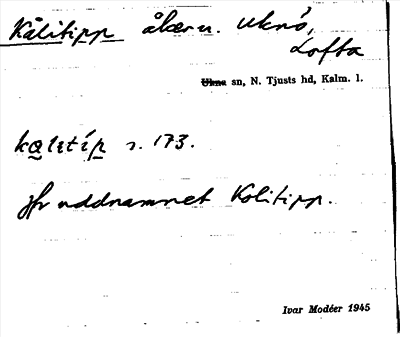 Kålitipp åkern. Uknö,
Lofta
Ukna sn, N. Tjusts hd, Kalm. l.
s. 173.
jfr uddnamnet Kolitipp.
Ivar Modéer 1945